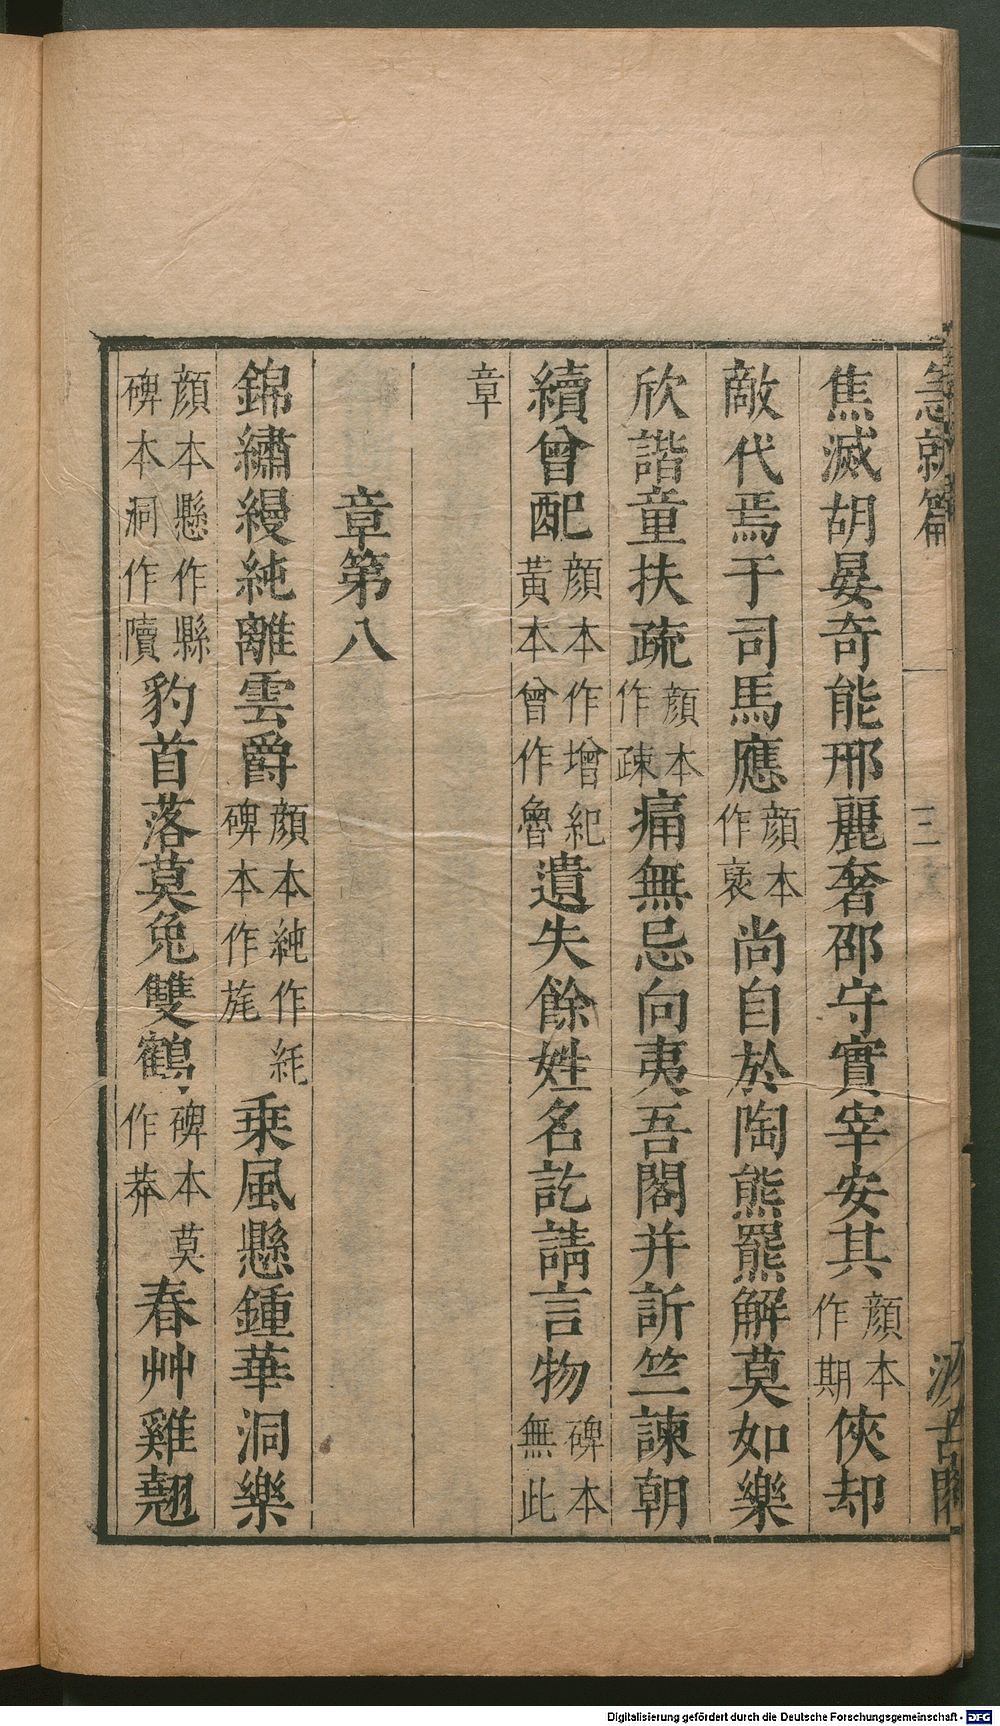 急就篇 三 汲古閣
焦滅胡晏奇能邢麗奢邵守實宰安其顔本作期俠却
敵代焉于司馬應顔本作褒尚自於陶熊羆解莫如樂
欣諧童扶疏顔本作踈痛無忌向夷吾閣并訢竺諫朝
續曾配顔本作增紀黃本曾作魯遺失餘姓名訖請言物碑本無此
章
章第八
錦繡縵純離雲爵顔本純作㲘碑本作旄乗風懸鍾華洞樂
顔本懸作縣碑本洞作㵠豹首落莫兔雙鶴碑本莫作莽春艸雞翹
Digitalisierung gefördert durch die Deutsche Forschungsgemeinschaft - DFG